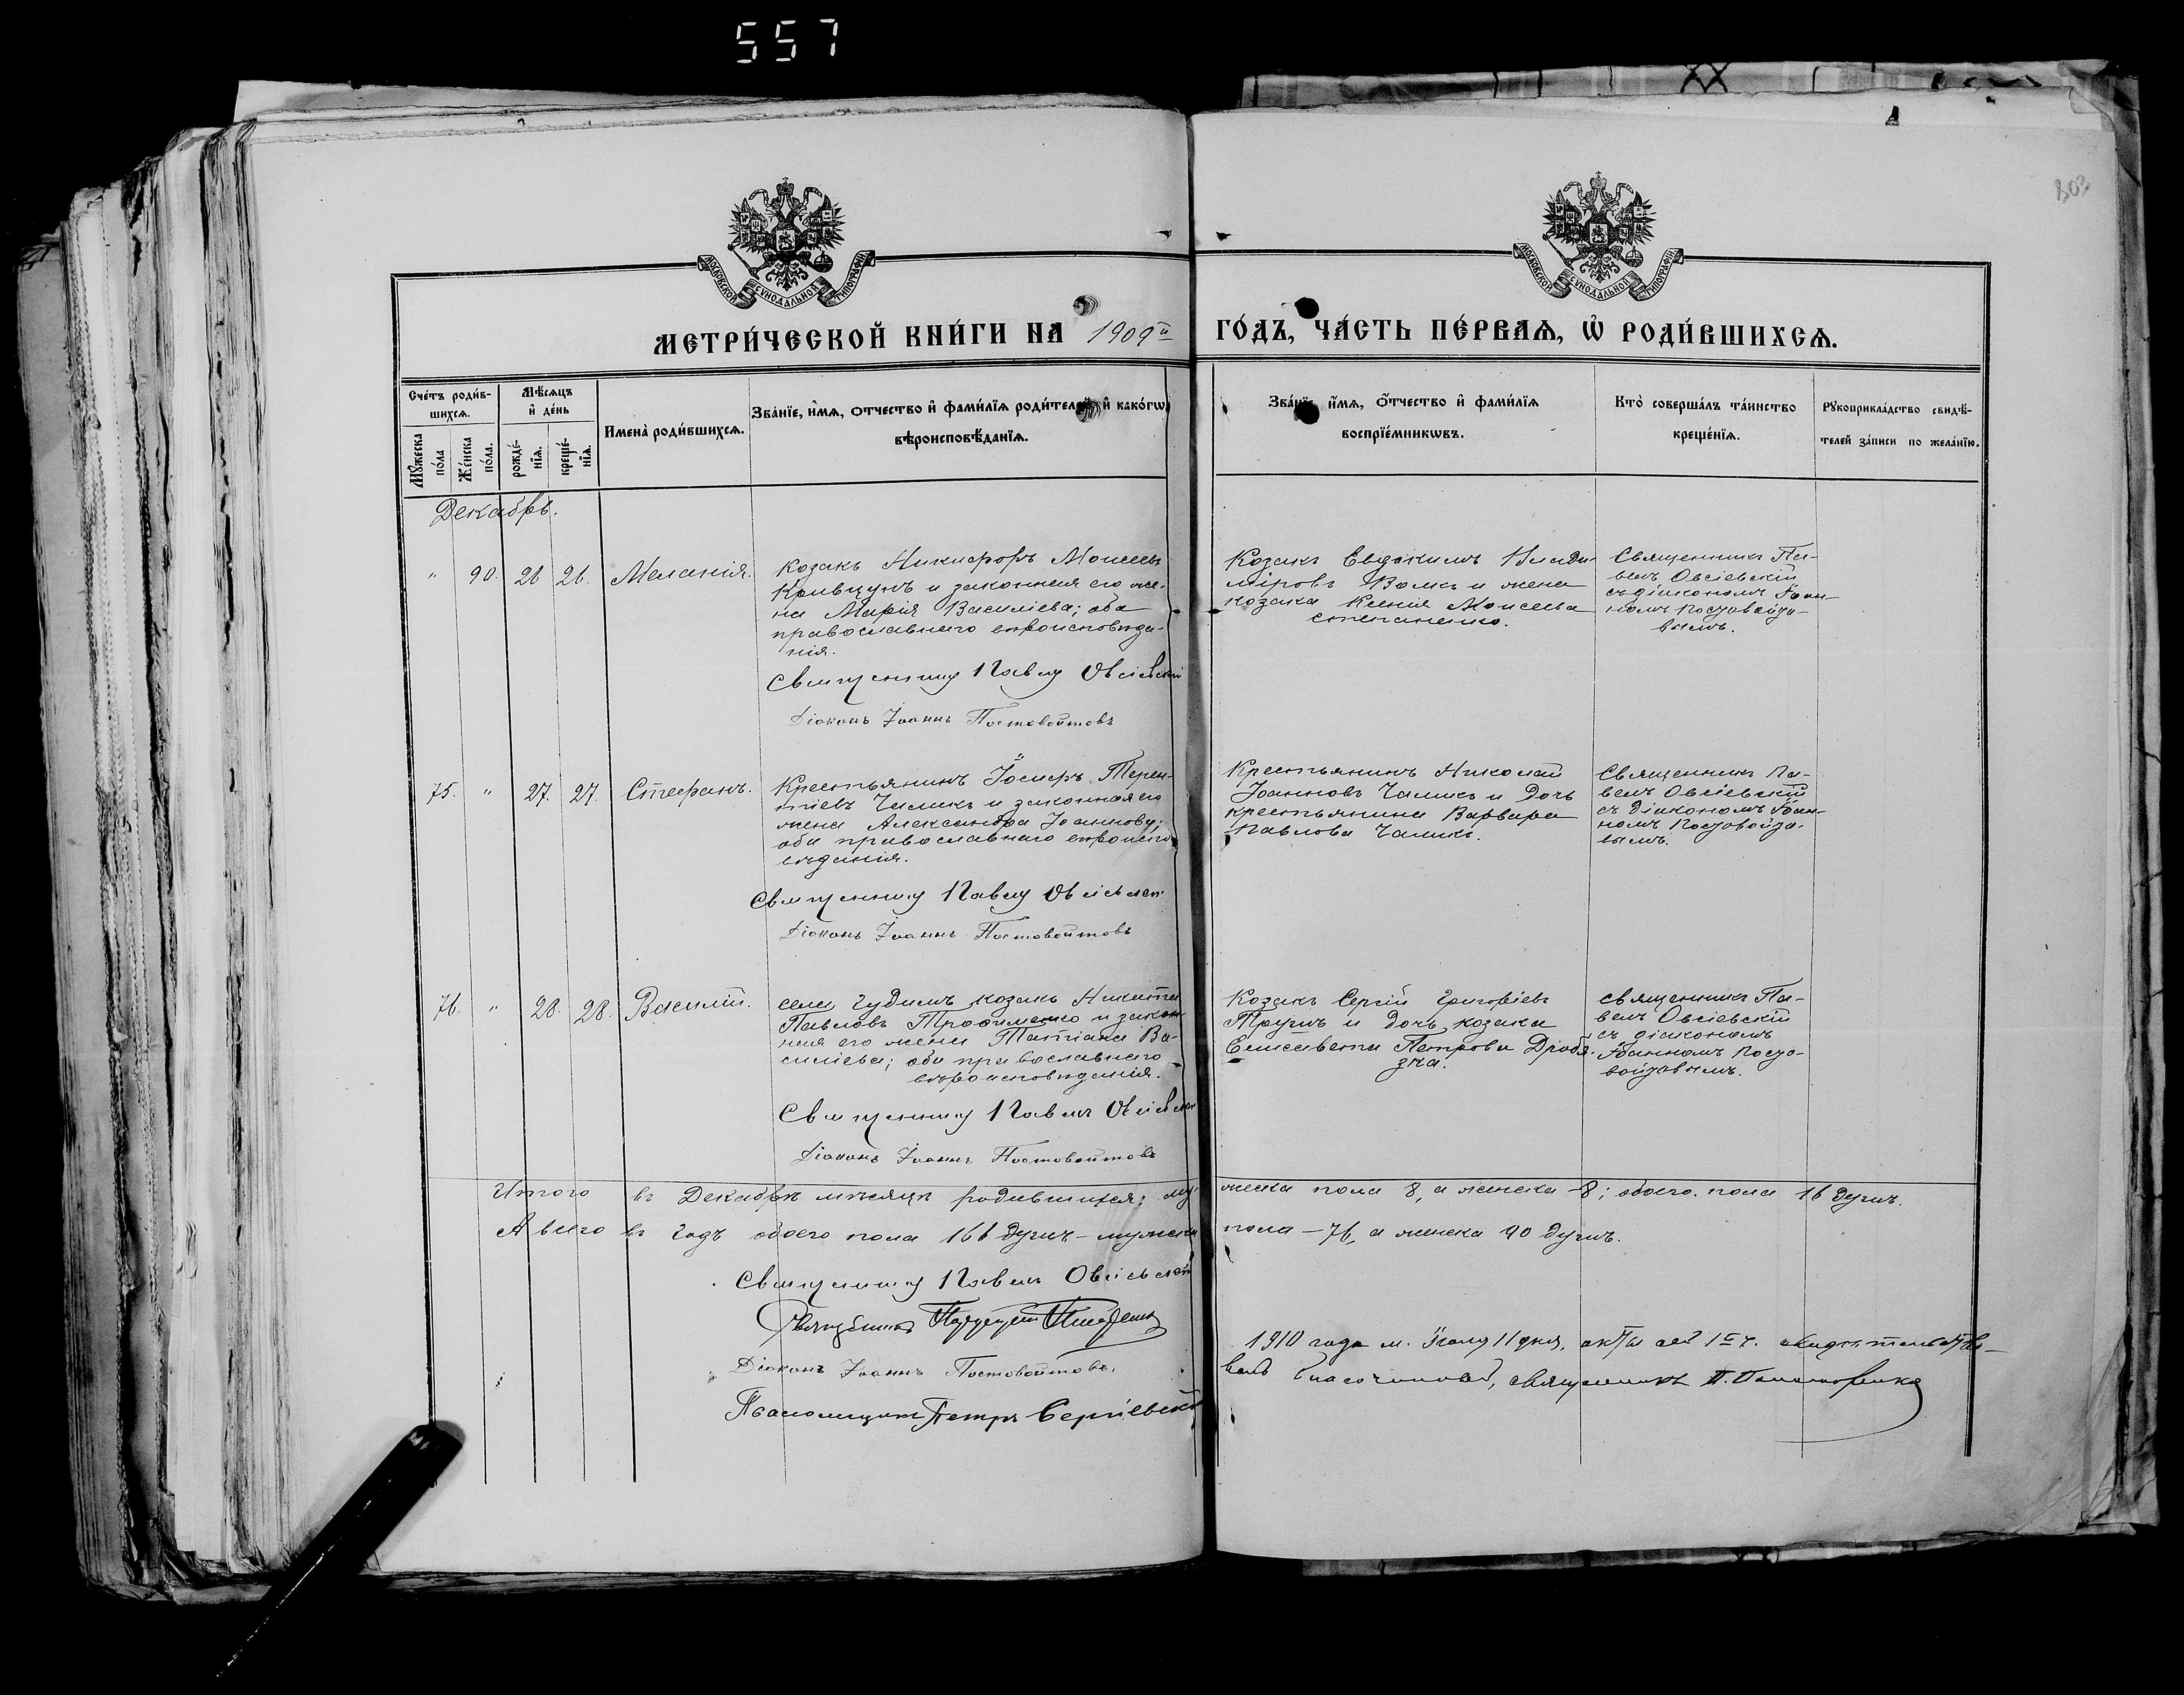 557
303
МОСКОВСКОЙ СѴНОДАЛЬНОЙ ТИПОГРАФІИ
МОСКОВСКОЙ СѴНОДАЛЬНОЙ ТИПОГРАФІИ
МЕТРИ́ЧЕСКОЙ КНИ́ГИ НА 1909й ГО́ДЪ, ЧА́СТЬ ПЕ́РВАѦ, Ѡ҆ РОДИ́ВШИХСѦ.
Сче́тъ роди́в-
шихсѧ.
Мꙋ́жеска по́ла
Же́нска по́ла.
Мѣ́сѧцъ и҆ де́нь
рожде́-
нїѧ.
креще́-
нїѧ.
Имена̀ роди́вшихсѧ.
Зва́нїе, и҆́мѧ, ѻ҆́тчество и҆ фами́лїѧ роди́телей и҆ како́гѡ
вѣроисповѣ́данїѧ.
Зва́нїе, и҆́мѧ, ѻ҆́тчество и҆ фами́лїѧ
воспрїе́мникѡвъ.
Кто̀ соверша́лъ та́инство
креще́нїѧ.
Рꙋкоприкла́дство свидѣ́-
телей за́писи по жела́нїю.
Декабрь.
" 90. 26 26. Меланія.
Козакъ Никифоръ Моисеевъ
Кривцунъ и законная его же-
на Марія Василіева; оба
православнаго вѣроисповѣда-
нія.
Священникъ Павелъ Овсіевскій
Діаконъ Іоаннъ Постовойтовъ
Козакъ Евдокимъ Влади-
міровъ Волкъ и жена
козака Ксенія Моисеева
Степаненко.
Священникъ Па-
велъ Овсіевскій
съ діакономъ Іоан-
номъ Постовойто-
вымъ.
75. " 27. 27. Стефанъ.
Крестьянинъ Іосифъ Терен-
тіевъ Чиликъ и законная его
жена Александра Іоаннова;
оба православнаго вѣроиспо-
вѣданія.
Священникъ Павелъ Овсіевскій
Діаконъ Іоаннъ Постовойтовъ
Крестьянинъ Николай
Іоанновъ Чаликъ и дочь
крестьянина Варвара
Павлова Чаликъ.
Священникъ Па-
велъ Овсіевскій
съ діакономъ Іоан-
номъ Постовойто-
вымъ.
76. " 28. 28. Василій.
села Гудимъ козакъ Никита
Павловъ Трофименко и закон-
ная его жена Татіана Ва-
силіева; оба православнаго
вѣроисповѣданія.
Священникъ Павелъ Овсіевскій
Діаконъ Іоаннъ Постовойтовъ
Козакъ Сергій Григоріевъ
Трушъ и дочь козака
Елисавета Петрова Дробя-
зка.
Священникъ Па-
велъ Овсіевскій
съ діакономъ
Іоанномъ Посто-
войтовымъ.
Итого въ Декабрѣ мѣсяцѣ родившихся: мужеска пола 8, а женска -8; обоего пола 16 душъ.
А всего въ годъ обоего пола 166 душъ - мужеска пола - 76, а женска 90 душъ.
Священникъ Павелъ Овсіевскій
Священникъ
Діаконъ Іоаннъ Постовойтовъ.
Псаломщикъ Петръ Сергіевскій
1910 года м. Іюля 11 дня, акты сей 1й ч. свидѣтельство-
валъ благочинный, священникъ П. Пономаренко